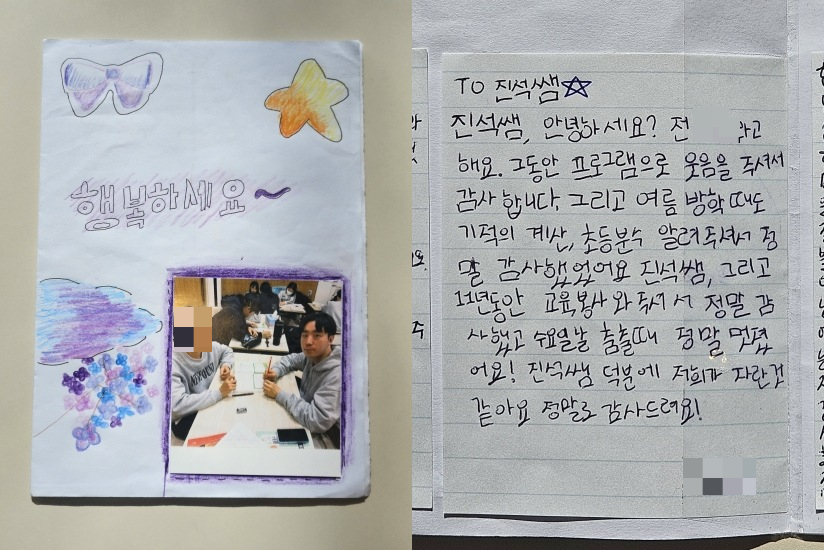 행복하세요~
TO 진석쌤☆
진석쌤, 안녕하세요? 전 라고
해요. 그동안 프로그램으로 웃음을 주셔서
감사합니다. 그리고 여름 방학 때도
기적의 계산, 초등분수 알려주셔서 정
말 감사했었어요 진석쌤, 그리고
1년동안 교육봉사 와주셔서 정말 감
사했고 수요일날 춤출때 정말 멋졌
어요! 진석쌤 덕분에 저희가 자란것
같아요 정말로 감사드려요!